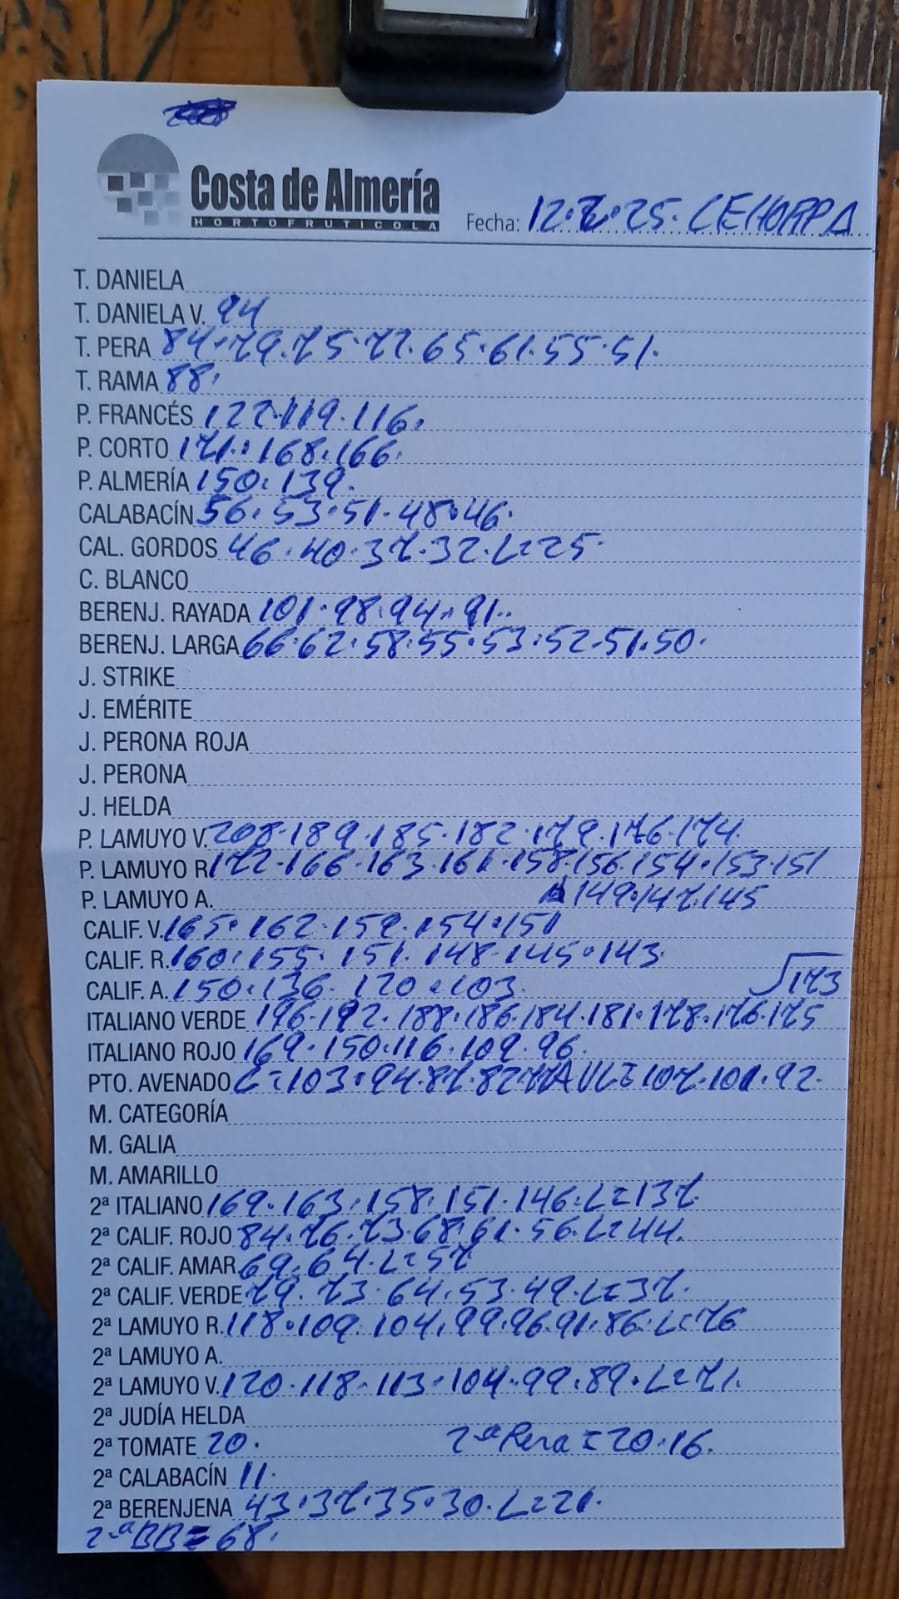 Costa de Almería
HORTOFRUTICOLA
Fecha: 12.2.25. CEHORPA
T. DANIELA
T. DANIELA V. 94
T. PERA 84.79.75.72.65.61.55.51.
T. RAMA 88.
P. FRANCÉS 122.119.116.
P. CORTO 171.168.166.
P. ALMERÍA 150.139.
CALABACÍN 56.53.51.48.46.
CAL. GORDOS 46.40.37.32.L=25.
C. BLANCO
BERENJ. RAYADA 101.98.94.91..
BERENJ. LARGA 66.62.58.55.53.52.51.50.
J. STRIKE
J. EMÉRITE
J. PERONA ROJA
J. PERONA
J. HELDA
P. LAMUYO V. 208.189.185.182.179.176.174.
P. LAMUYO R. 172.166.163.161.158.156.154.153.151
P. LAMUYO A. 149.147.145
CALIF. V. 165.162.159.154.151
CALIF. R. 160.155.151.148.145.143.
CALIF. A. 150.136.120.103. 173
ITALIANO VERDE 196.192.188.186.184.181.178.176.175
ITALIANO ROJO 169.150.116.109.96.
PTO. AVENADO L=103.94.87.82 AVL=107.101.92.
M. CATEGORÍA
M. GALIA
M. AMARILLO
2ª ITALIANO 169.163.158.151.146.L=137.
2ª CALIF. ROJO 84.76.73.68.61.56.L=44.
2ª CALIF. AMAR 69.64.L=57
2ª CALIF. VERDE 79.73.64.53.49.L=37.
2ª LAMUYO R. 118.109.104.99.96.91.86.L=76
2ª LAMUYO A.
2ª LAMUYO V. 120.118.113.104.99.89.L=71.
2ª JUDÍA HELDA
2ª TOMATE 20. 2ª Pera=20.16.
2ª CALABACÍN 11.
2ª BERENJENA 43.37.35.30.L=21.
2ªBB=68.